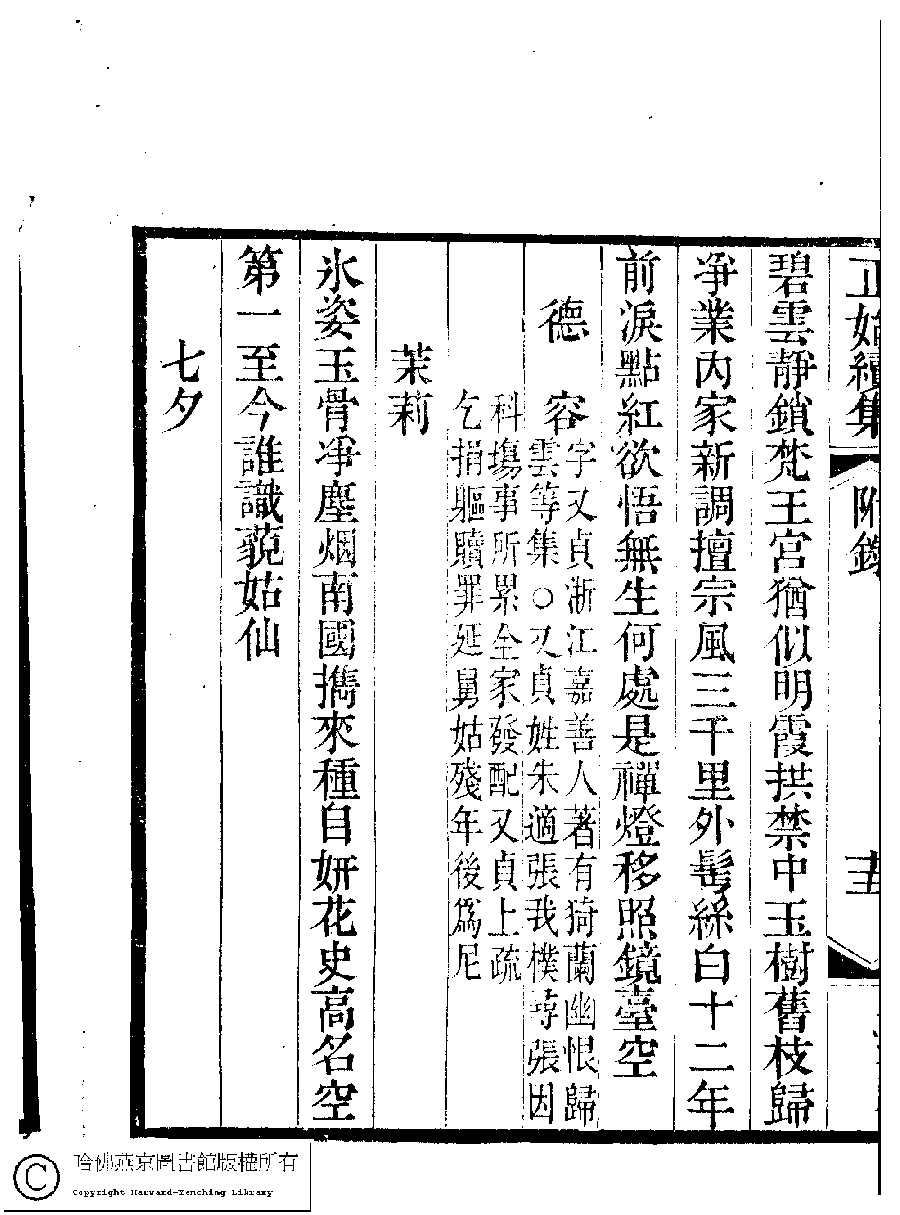 正始續集 附錄
碧雲靜鎖梵王宮猶似明霞拱禁中玉樹舊枝歸
淨業内家新調擅宗風三千里外髩絲白十二年
前淚點紅欲悟無生何處是禪燈移照鏡臺空
德 容
字又貞浙江嘉善人著有猗蘭幽恨歸
雲等集○又貞姓朱適張我樸尋張因
科塲事所累全家發配又貞上疏
乞捐軀贖罪延舅姑殘年後爲尼
茉莉
氷姿玉骨淨塵烟南國擕來種自妍花史高名空
第一至今誰識藐姑仙
七夕
哈佛燕京圖書館版權所有
Copyright Harvard-Yenching Library